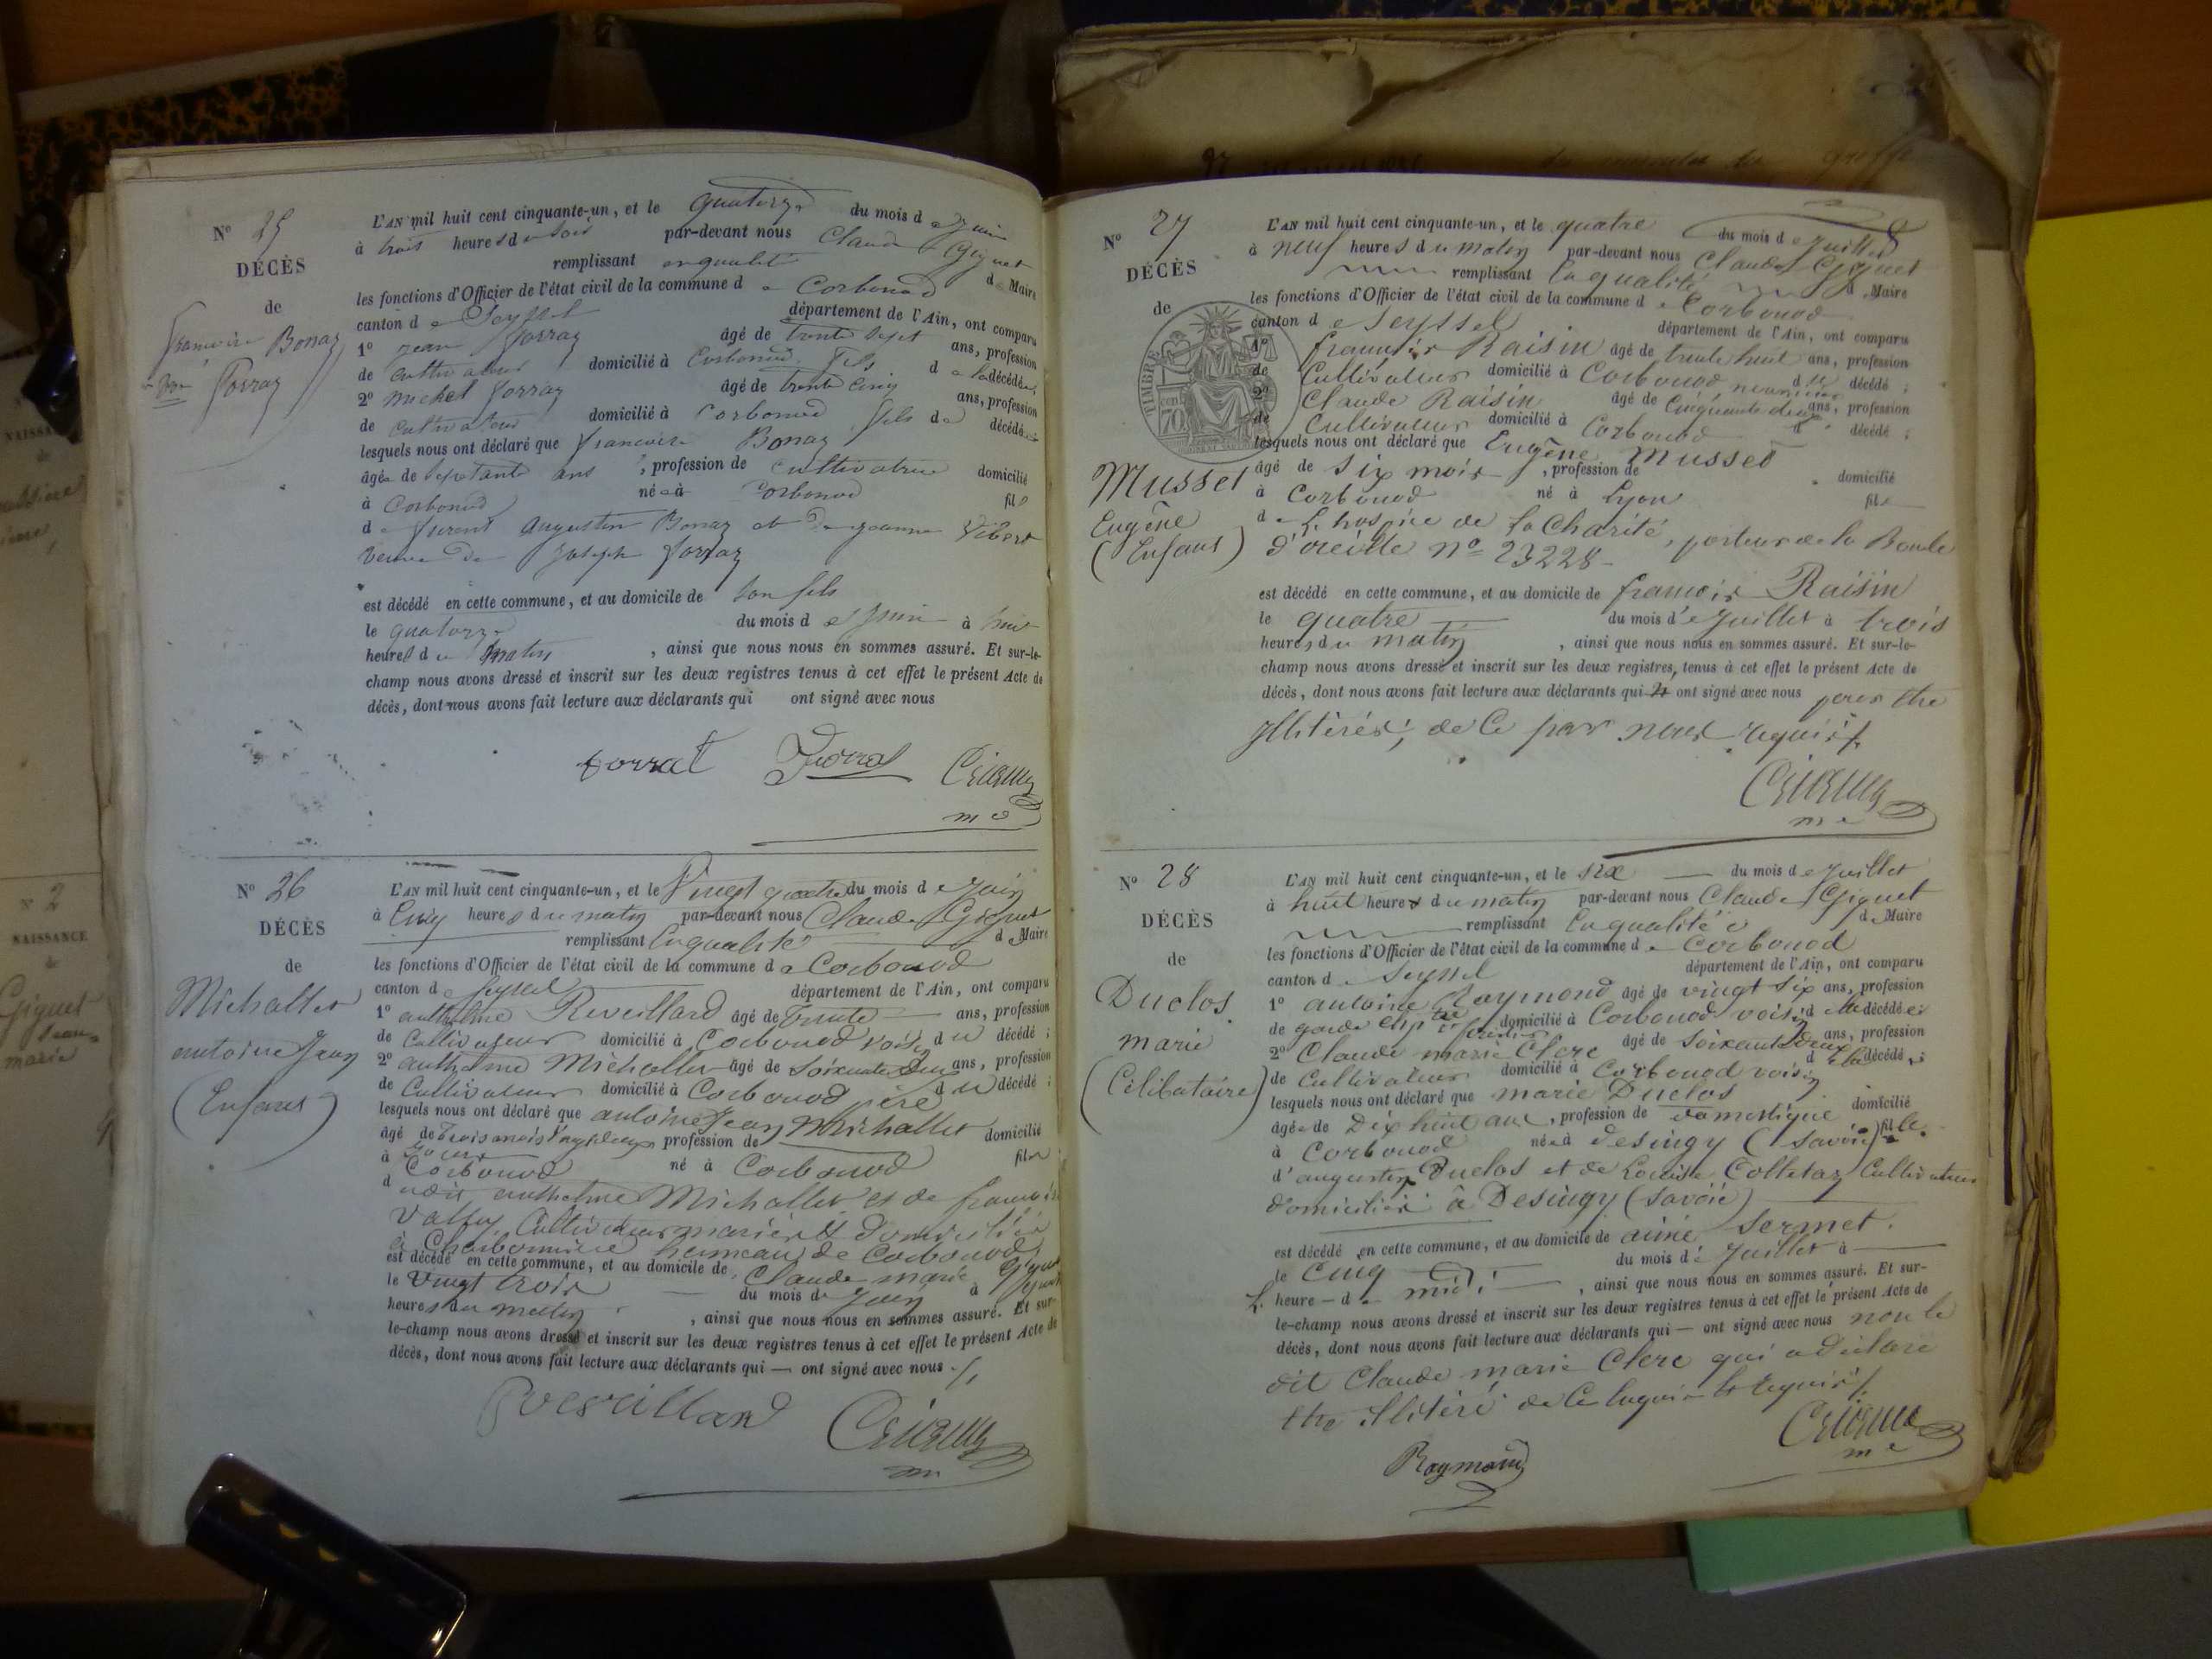 N° 25
DÉCÈS
de
Francoise Bonaz
Vve Forraz
L'AN mil huit cent cinquante-un, et le quatorze du mois de Juin
à trois heures du soir par-devant nous Claude Giguet
remplissant en qualité de Maire
les fonctions d'Officier de l'état civil de la commune de Corbonod
canton de Seyssel département de l'Ain, ont comparu
1° Jean Forraz âgé de trente sept ans, profession
de cultivateur domicilié à Corbonod fils de la décédée,
2° Michel Forraz âgé de trente cinq ans, profession
de cultivateur domicilié à Corbonod fils de décédée
lesquels nous ont déclaré que francoise Bonaz
âgée de septante ans, profession de cultivatrice domicilié
à Corbonod née à Corbonod fil
de furent Augustin Bonaz et de jeanne Vibert
veuve de Joseph Forraz
est décédé en cette commune, et au domicile de son fils
le quatorze du mois de Juin à huit
heures du matin, ainsi que nous nous en sommes assuré. Et sur-le-
champ nous avons dressé et inscrit sur les deux registres tenus à cet effet le présent Acte de
décès, dont nous avons fait lecture aux déclarants qui ont signé avec nous
forrat Forrat
N° 26
DÉCÈS
de
Michallet
antoine Jean
(Enfant)
L'AN mil huit cent cinquante-un, et le Vingt quatre du mois de Juin
à Cinq heures du matin par-devant nous Claude Giguet
remplissant En qualité de Maire
les fonctions d'Officier de l'état civil de la commune de Corbonod
canton de Seyssel département de l'Ain, ont comparu
1° anthelme Reveillard âgé de Trente ans, profession
de Cultivateur domicilié à Corbonod voisin du décédé ;
2° anthelme Michallet âgé de Soixante deux ans, profession
de Cultivateur domicilié à Corbonod père du décédé ;
lesquels nous ont déclaré que antoine Jean Michallet
âgé de Trois mois vingt deux jours profession de domicilié
à Corbonod né à Corbonod fils
dudit anthelme Michallet et de francoise
Vallet, Cultivateurs mariés et domiciliés
à Charbonnière hameau de Corbonod
est décédé en cette commune, et au domicile de Claude marie Giguet
le Vingt trois du mois de Juin à
heures du matin, ainsi que nous nous en sommes assuré. Et sur-
le-champ nous avons dressé et inscrit sur les deux registres tenus à cet effet le présent Acte de
décès, dont nous avons fait lecture aux déclarants qui — ont signé avec nous ./.
Reveillard
N° 27
DÉCÈS
de
Musset
Eugène
(Enfant)
TIMBRE
70
L'AN mil huit cent cinquante-un, et le quatre du mois de Juillet
à neuf heures du matin par-devant nous Claude Giguet
remplissant En qualité de Maire
les fonctions d'Officier de l'état civil de la commune de Corbonod
canton de Seyssel département de l'Ain, ont comparu
1° francois Raisin âgé de trente huit ans, profession
de Cultivateur domicilié à Corbonod nourricier du décédé ;
2° Claude Raisin âgé de Cinquante deux ans, profession
de Cultivateur domicilié à Corbonod d décédé ;
lesquels nous ont déclaré que Eugène Musset
âgé de Six mois, profession de domicilié
à Corbonod né à Lyon fil
de L'hospice de la Charité, porteur de la Boucle
d'oreille n° 23228 -
est décédé en cette commune, et au domicile de francois Raisin
le quatre du mois de Juillet à trois
heures du matin, ainsi que nous nous en sommes assuré. Et sur-le-
champ nous avons dressé et inscrit sur les deux registres, tenus à cet effet le présent Acte de
décès, dont nous avons fait lecture aux déclarants qui n ont signé avec nous pour être
illitérés, de ce par nous requis ./.
me
N° 28
DÉCÈS
de
Duclos
marie
(Célibataire)
L'AN mil huit cent cinquante-un, et le six du mois de Juillet
à huit heures du matin par-devant nous Claude Giguet
remplissant En qualité de Maire
les fonctions d'Officier de l'état civil de la commune de Corbonod
canton de Seyssel département de l'Ain, ont comparu
1° antoine Raymond âgé de vingt six ans, profession
de garde champêtre forestier domicilié à Corbonod voisin de la décédée ;
2° Claude marie Clerc âgé de soixante deux ans, profession
de Cultivateur domicilié à Corbonod voisin de la décédée ;
lesquels nous ont déclaré que marie Duclos
âgée de Dix huit ans, profession de domestique domicilié
à Corbonod née à desingy (savoie) fille
d'augustin Duclos et de Louise Colletaz Cultivateurs
domiciliés à Desingy (savoie)
est décédé en cette commune, et au domicile de aimé Sermet.
le Cinq du mois de Juillet à
L' heure — de midi, ainsi que nous nous en sommes assuré. Et sur-
le-champ nous avons dressé et inscrit sur les deux registres tenus à cet effet le présent Acte de
décès, dont nous avons fait lecture aux déclarants qui — ont signé avec nous non le
dit Claude marie Clerc qui a déclaré
être illitéré de ce enquis et requis ./.
Raymond
me
N° 2
NAISSANCE
de
Giguet
Jean-
marie